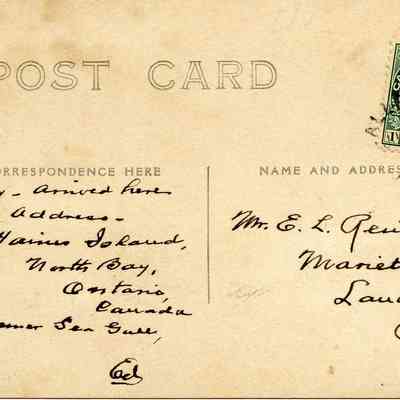 POST CARD
ORRESPONDENCE HERE
y - Arrived here
Address -
Haines Island,
North Bay,
Ontario,
Canada
Sea Gull,
Ed
NAME AND ADDRES
Mr. E. L.
Mariet